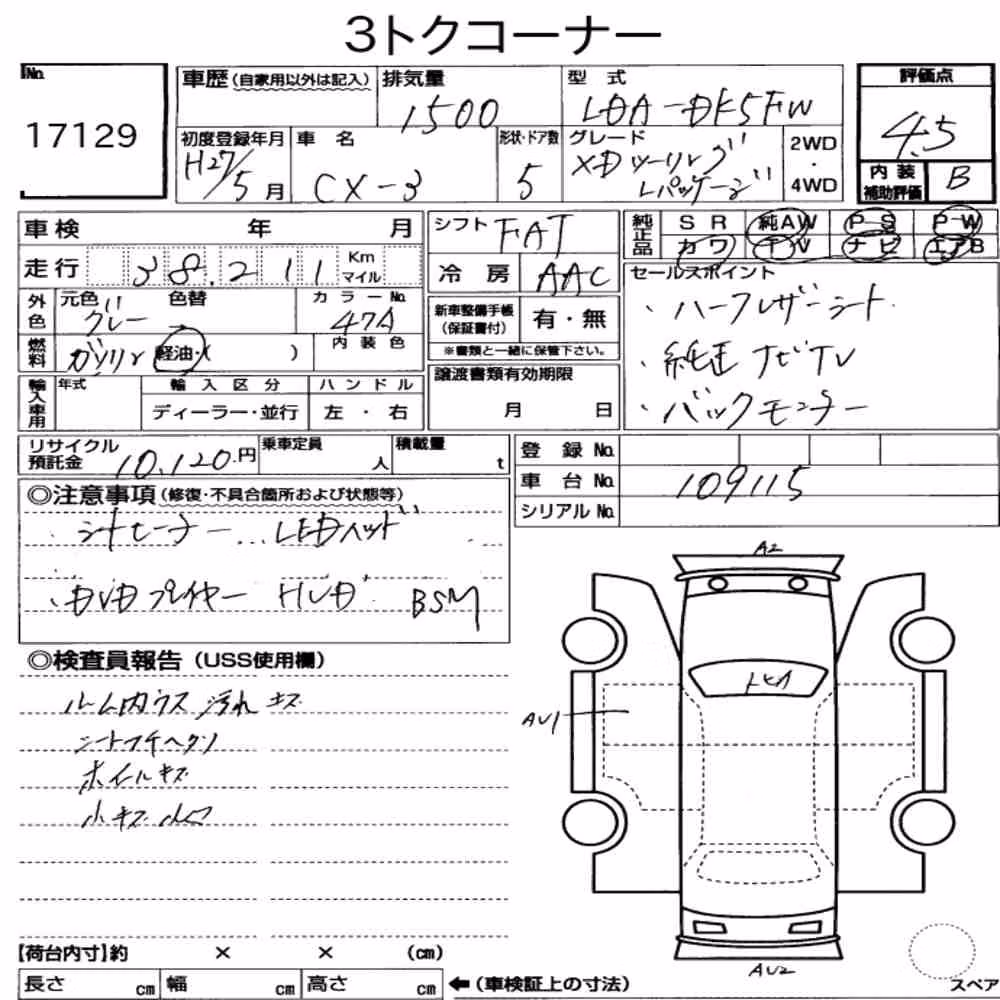 3トクコーナー
No.
17129
車歴 (自家用以外は記入)
排気量
1500
型 式
LDA-DK5FW
評価点
4.5
初度登録年月
H27/5 月
車 名
CX-3
形状・ドア数
5
グレード
XDツーリング
Lパッケージ
2WD
・
4WD
内 装
補助評価
B
車検 年 月
走行 38,211 Km
マイル
外色
元色 グレー
色替
カラーNo.
47A
燃料
ガソリン 軽油・( )
内装色
輸入車用
年式
輸入区分
ハンドル
ディーラー・並行
左 ・ 右
シフト FAT
冷 房 AAC
新車整備手帳
(保証書付)
有・無
※書類と一緒に保管下さい。
譲渡書類有効期限
月 日
純正品
SR 純AW PS PW
カワ TV ナビ エアB
セールスポイント
・ハーフレザーシート
・純正ナビTV
・バックモニター
リサイクル
預託金 10,120 円
乗車定員
人
積載量
t
登 録 No.
車 台 No. 109115
シリアル No.
◎注意事項 (修復・不具合箇所および状態等)
・シートヒーター LEDヘッド
・DVDプレイヤー HUD BSM
◎検査員報告 (USS使用欄)
ルーム内ウス汚れ キズ
シートフチヘタリ
ホイールキズ
小キズ 小凹
A2
トヒA
AU1
AU2
【荷台内寸】約 × × (cm)
長さ cm 幅 cm 高さ cm ←(車検証上の寸法)
スペア